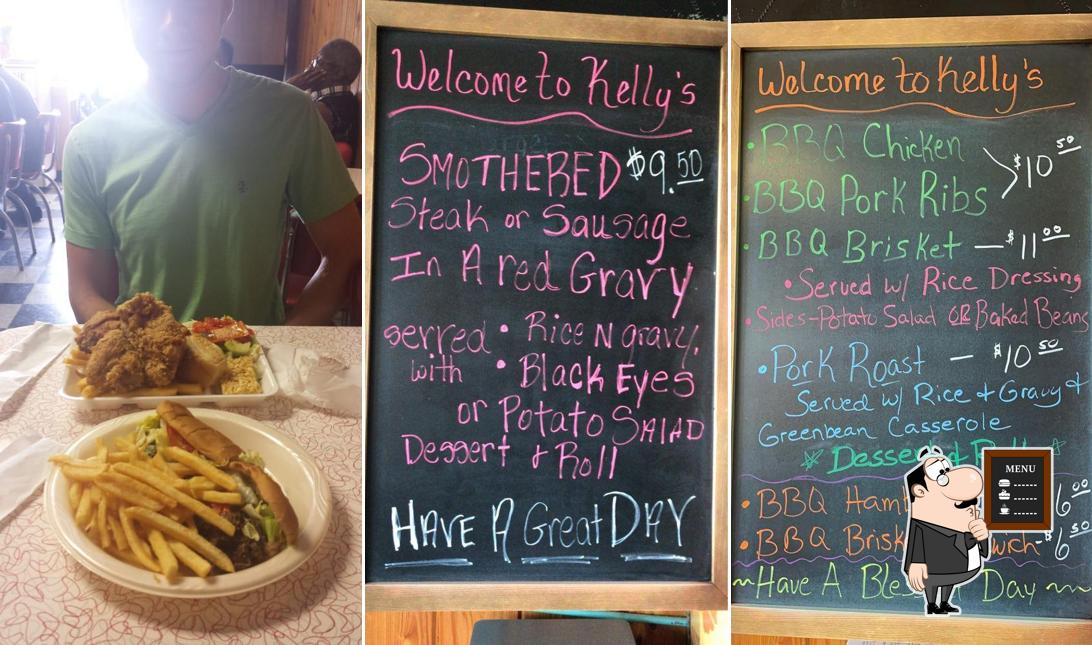 Welcome to Kelly's
SMOTHERED $9.50
Steak or Sausage
In A red Gravy
served • Rice N gravy,
with • Black Eyes
or Potato SALAD
Dessert & Roll
HAVE A Great DAY
Welcome to Kelly's
• BBQ Chicken
$10 50
• BBQ Pork Ribs
• BBQ Brisket — $11 00
• Served w/ Rice Dressing
• Sides-Potato Salad OR Baked Beans
• Pork Roast — $10 50
Served w/ Rice & Gravy &
Greenbean Casserole
Dessert & Roll
MENU
• BBQ 6 00
• BBQ $6 50
~ Have A Day ~